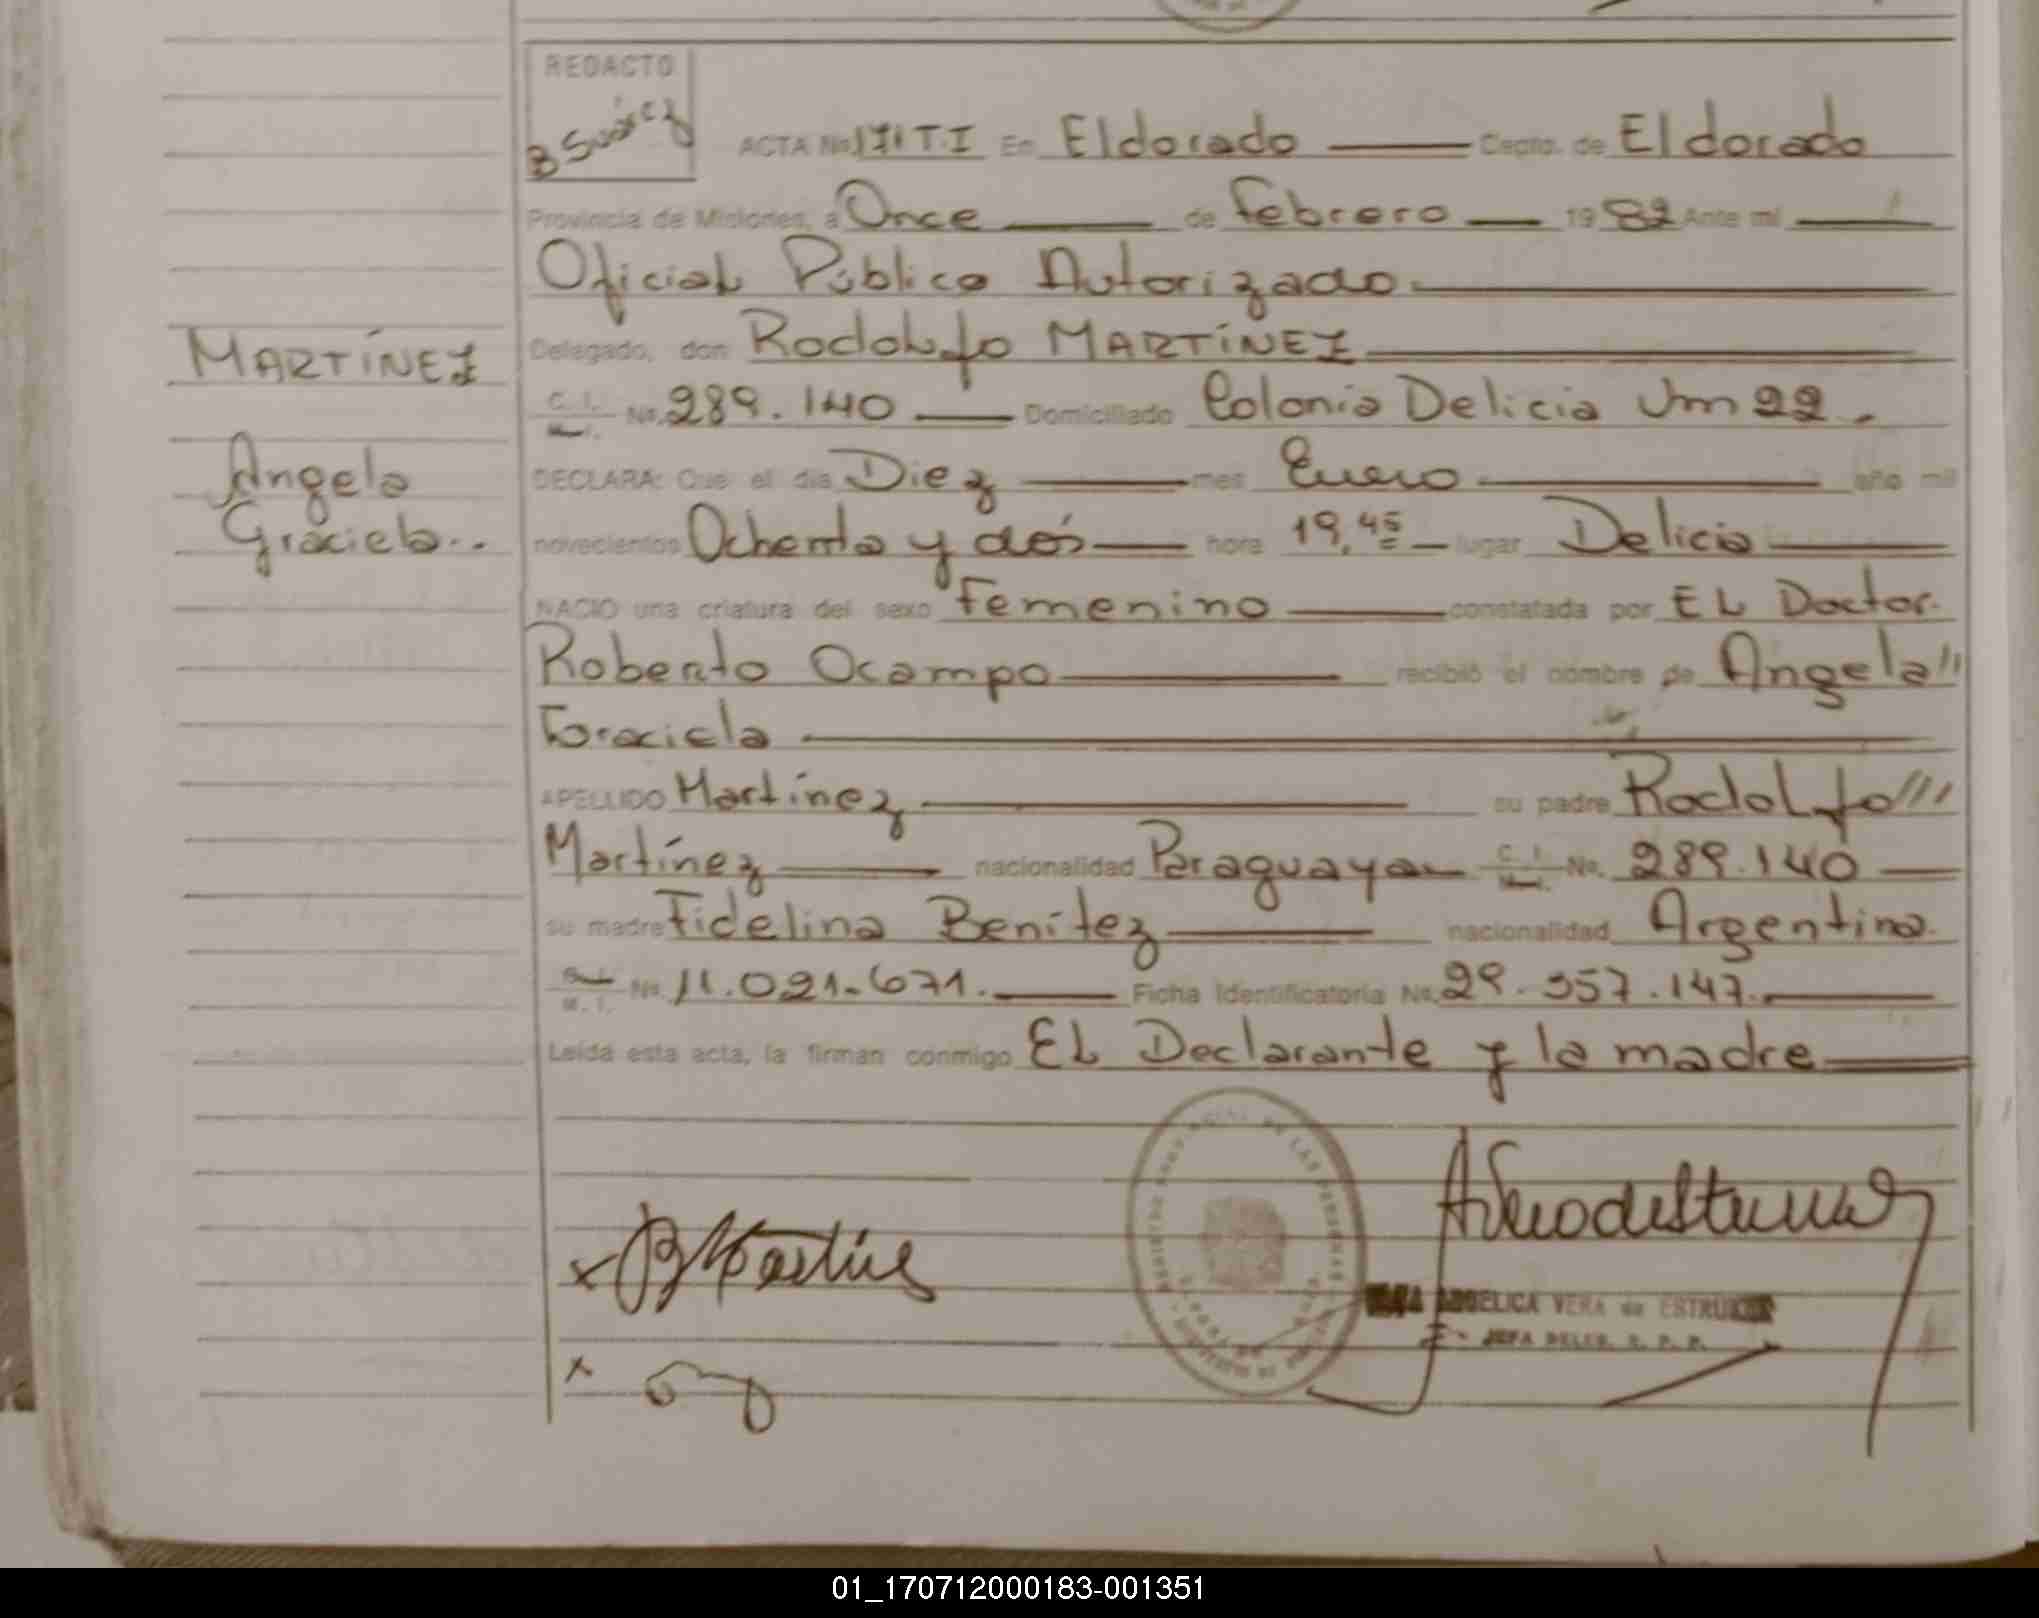 REDACTO
B Suárez
ACTA No. 171 T. I En Eldorado Depto. de Eldorado
Provincia de Misiones, a Once de Febrero 1982 Ante mí
Oficial Público Autorizado.
Delegado, don Rodolfo MARTÍNEZ
MARTÍNEZ
C. I. No. 289.140 Domiciliado Colonia Delicia Km 22.
Angela
DECLARA: Que el día Diez mes Enero año mil
Graciela..
novecientos Ochenta y dós hora 19,45 lugar Delicia
NACIO una criatura del sexo Femenino constatada por EL Doctor.
Roberto Ocampo recibió el nombre de Angela
Graciela
APELLIDO Martínez su padre Rodolfo
Martínez nacionalidad Paraguaya C. I. No. 289.140
su madre Fidelina Benítez nacionalidad Argentina.
M. I. No. 11.021.671. Ficha Identificatoria No. 29.357.147.
Leída esta acta, la firman conmigo EL Declarante y la madre
ANGELICA VERA de
JEFA DELEG. R. P. P.
01_170712000183-001351